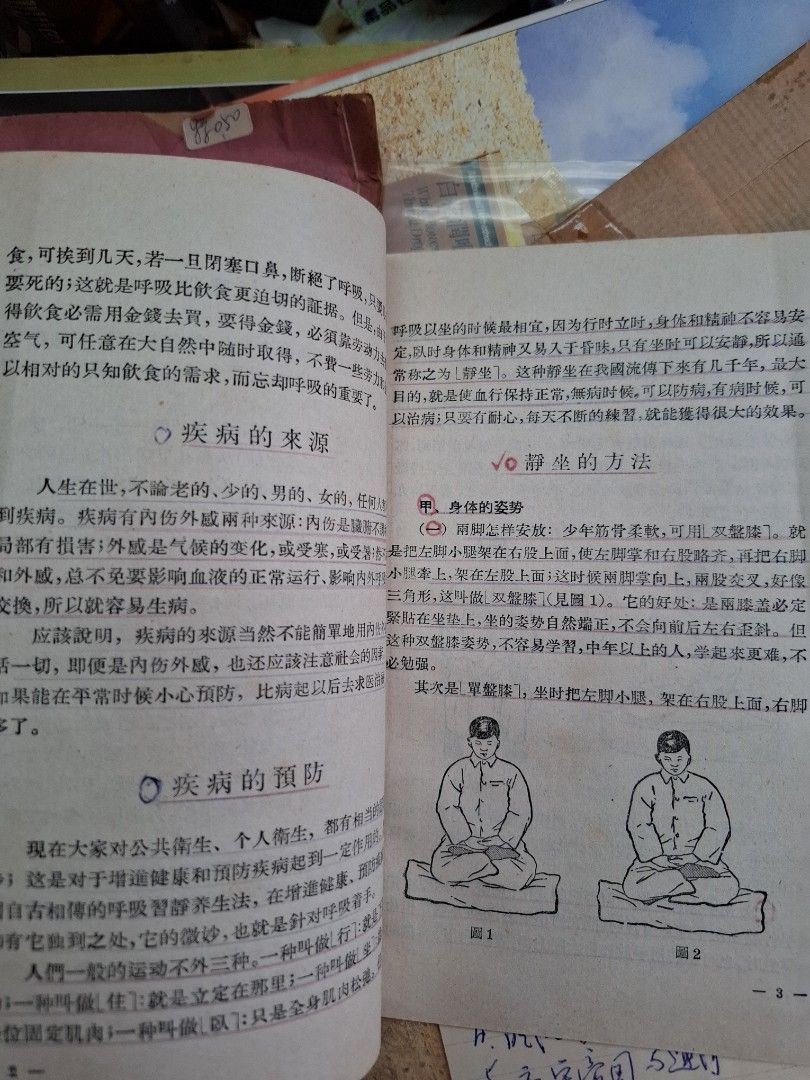 食,可挨到几天,若一旦閉塞口鼻,断絕了呼吸,只要
要死的;这就是呼吸比飲食更迫切的証据。但是,
得飲食必需用金錢去買,要得金錢,必須靠劳动力去
空气,可任意在大自然中随时取得,不費一些劳力和
以相对的只知飲食的需求,而忘却呼吸的重要了。
疾病的來源
人生在世,不論老的、少的、男的、女的,任何人
到疾病。疾病有內伤外感兩种來源:內伤是臟腑不
局部有損害;外感是气候的变化,或受寒,或受暑;
和外感,总不免要影响血液的正常运行、影响內外
交換,所以就容易生病。
应該說明,疾病的來源当然不能簡單地用內伤
括一切,即便是內伤外感,也还应該注意社会的因素
如果能在平常时候小心預防,比病起以后去求医治
多了。
疾病的預防
現在大家对公共衛生、个人衛生,都有相当的
这是对于增進健康和預防疾病起到一定作用的。
自古相傳的呼吸習靜养生法,在增進健康、預防疾病
有它独到之处,它的微妙,也就是針对呼吸着手。
人們一般的运动不外三种。一种叫做⌊行⌉:就是
一种叫做⌊住⌉:就是立定在那里;一种叫做⌊坐
位固定肌肉;一种叫做⌊臥⌉:只是全身肌肉松弛。
2 —
88050
呼吸以坐的时候最相宜,因为行时立时,身体和精神不容易安
定,臥时身体和精神又易入于昏昧,只有坐时可以安靜,所以通
常称之为⌊靜坐⌉。这种靜坐在我國流傳下來有几千年,最大
目的,就是使血行保持正常,無病时候,可以防病,有病时候,可
以治病;只要有耐心,每天不断的練習,就能獲得很大的效果。
靜坐的方法
甲、身体的姿勢
(一) 兩脚怎样安放: 少年筋骨柔軟,可用⌊双盤膝⌉。就
是把左脚小腿架在右股上面,使左脚掌和右股略齐,再把右脚
小腿牽上,架在左股上面;这时候兩脚掌向上,兩股交叉,好像
三角形,这叫做⌊双盤膝⌉(見圖1)。它的好处: 是兩膝盖必定
緊貼在坐墊上,坐的姿勢自然端正,不会向前后左右歪斜。但
这种双盤膝姿勢,不容易学習,中年以上的人,学起來更难,不
必勉强。
其次是⌊單盤膝⌉,坐时把左脚小腿,架在右股上面,右脚
圖1
圖2
— 3 —